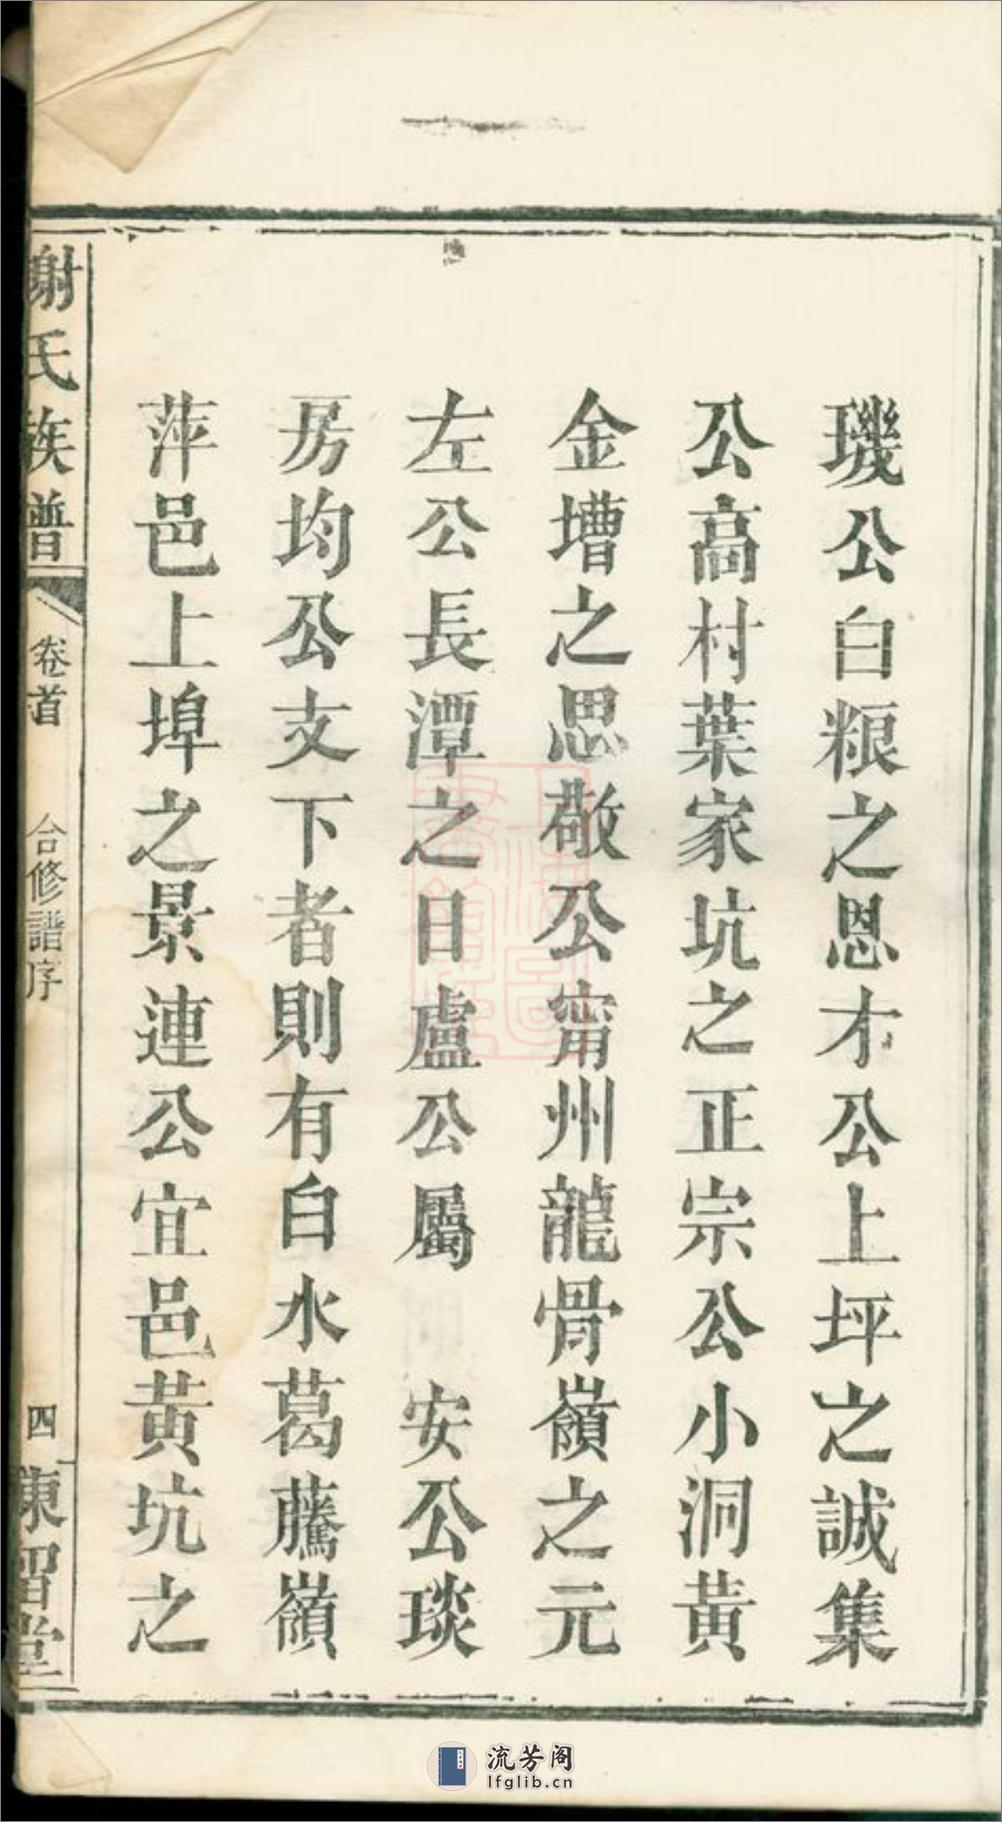 璣公白粮之恩才公上坪之誠集
公高村葉家坑之正宗公小洞黃
金墰之思敬公甯州龍骨嶺之元
左公長潭之日盧公屬 安公琰
房均公支下者則有白水葛藤嶺
萍邑上埠之景連公宜邑黃坑之
謝氏族譜
卷首
合修譜序
四
陳留堂
流芳阁
lfglib.cn